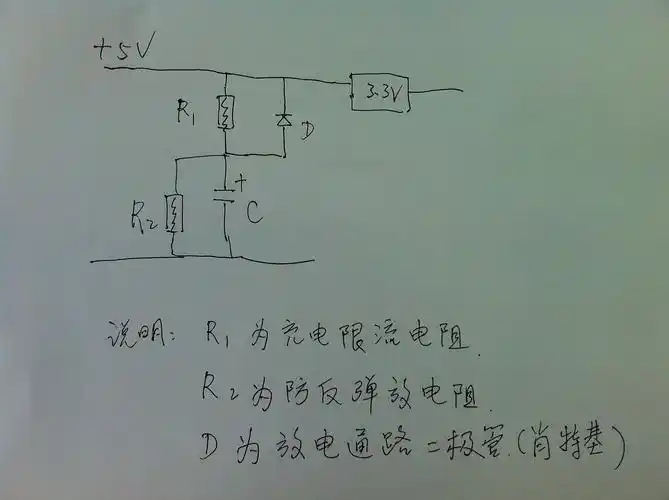 +5V
3.3V
R₁
D
+
R₂
C
说明: R₁为充电限流电阻.
R₂为防反弹放电电阻.
D为放电通路二极管.(肖特基)